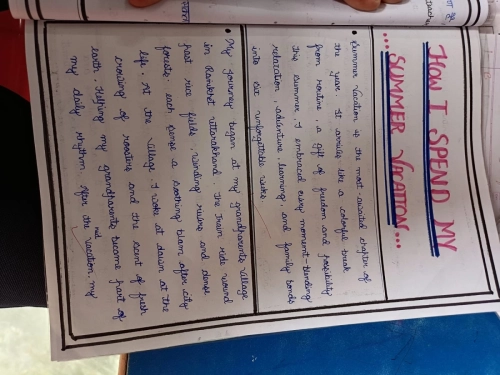 HOW I SPEND MY
SUMMER VACATION...
• Summer Vacation is the most awaited chapter of
the year. It arrives like a colorful break
from routine, a gift of freedom and possibility
this summer, I embraced every moment blending
relaxation, adventure, learning, and family bonds
into six unforgettable weeks.
• My journey began at my grandparents village
in Ranikhet uttarakhand. The train ride wound
past rice fields, winding rivers and dense
forests each scence a soothing blam after city
life. At the village, I woke at dawn at the
crowing of roosters and the scent of fresh
earth. Helping my grandparents become part of
my daily rhythm. After the vacation. my